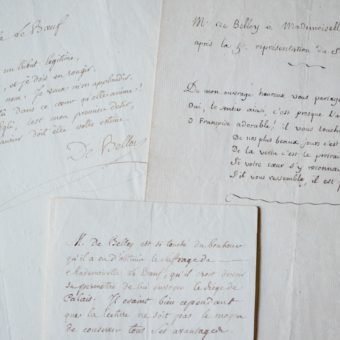 le de Boeuf
un tribut légitime,
et je dois en rougir.
non. Je veux m'applaudir
dans ce cœur qu'elle anime!
c'est mon premier désir,
doit être votre estime.
De Belloy
M. de Belloy à Mademoiselle
après la 5e représentation du S
De mon ouvrage heureux vous partagez
Oui, le notre ainsi, c'est presque l'a
O Françoise adorable! il vous touche
De nos plus beaux jours c'est
De la vertu c'est le portrai
Si votre cœur s'y reconnai
S'il vous ressemble, il est p
M. de Belloy est si touché du bonheur
qu'il a eu d'obtenir le suffrage de
Mademoiselle de Boeuf, qu'il croit devoir
se permettre de lui envoyer le Siège de
Calais. Il craint bien cependant
que la lecture ne soit pas le moyen
de conserver tout ses avantages